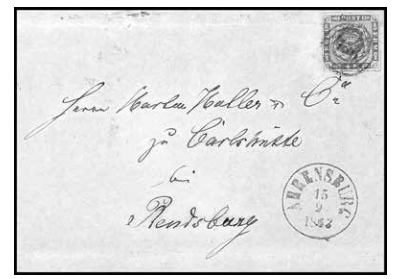 Herrn Hartw Holler & Co
zu Carlshütte
bei
Rendsburg
AHRENSBURG
15
9